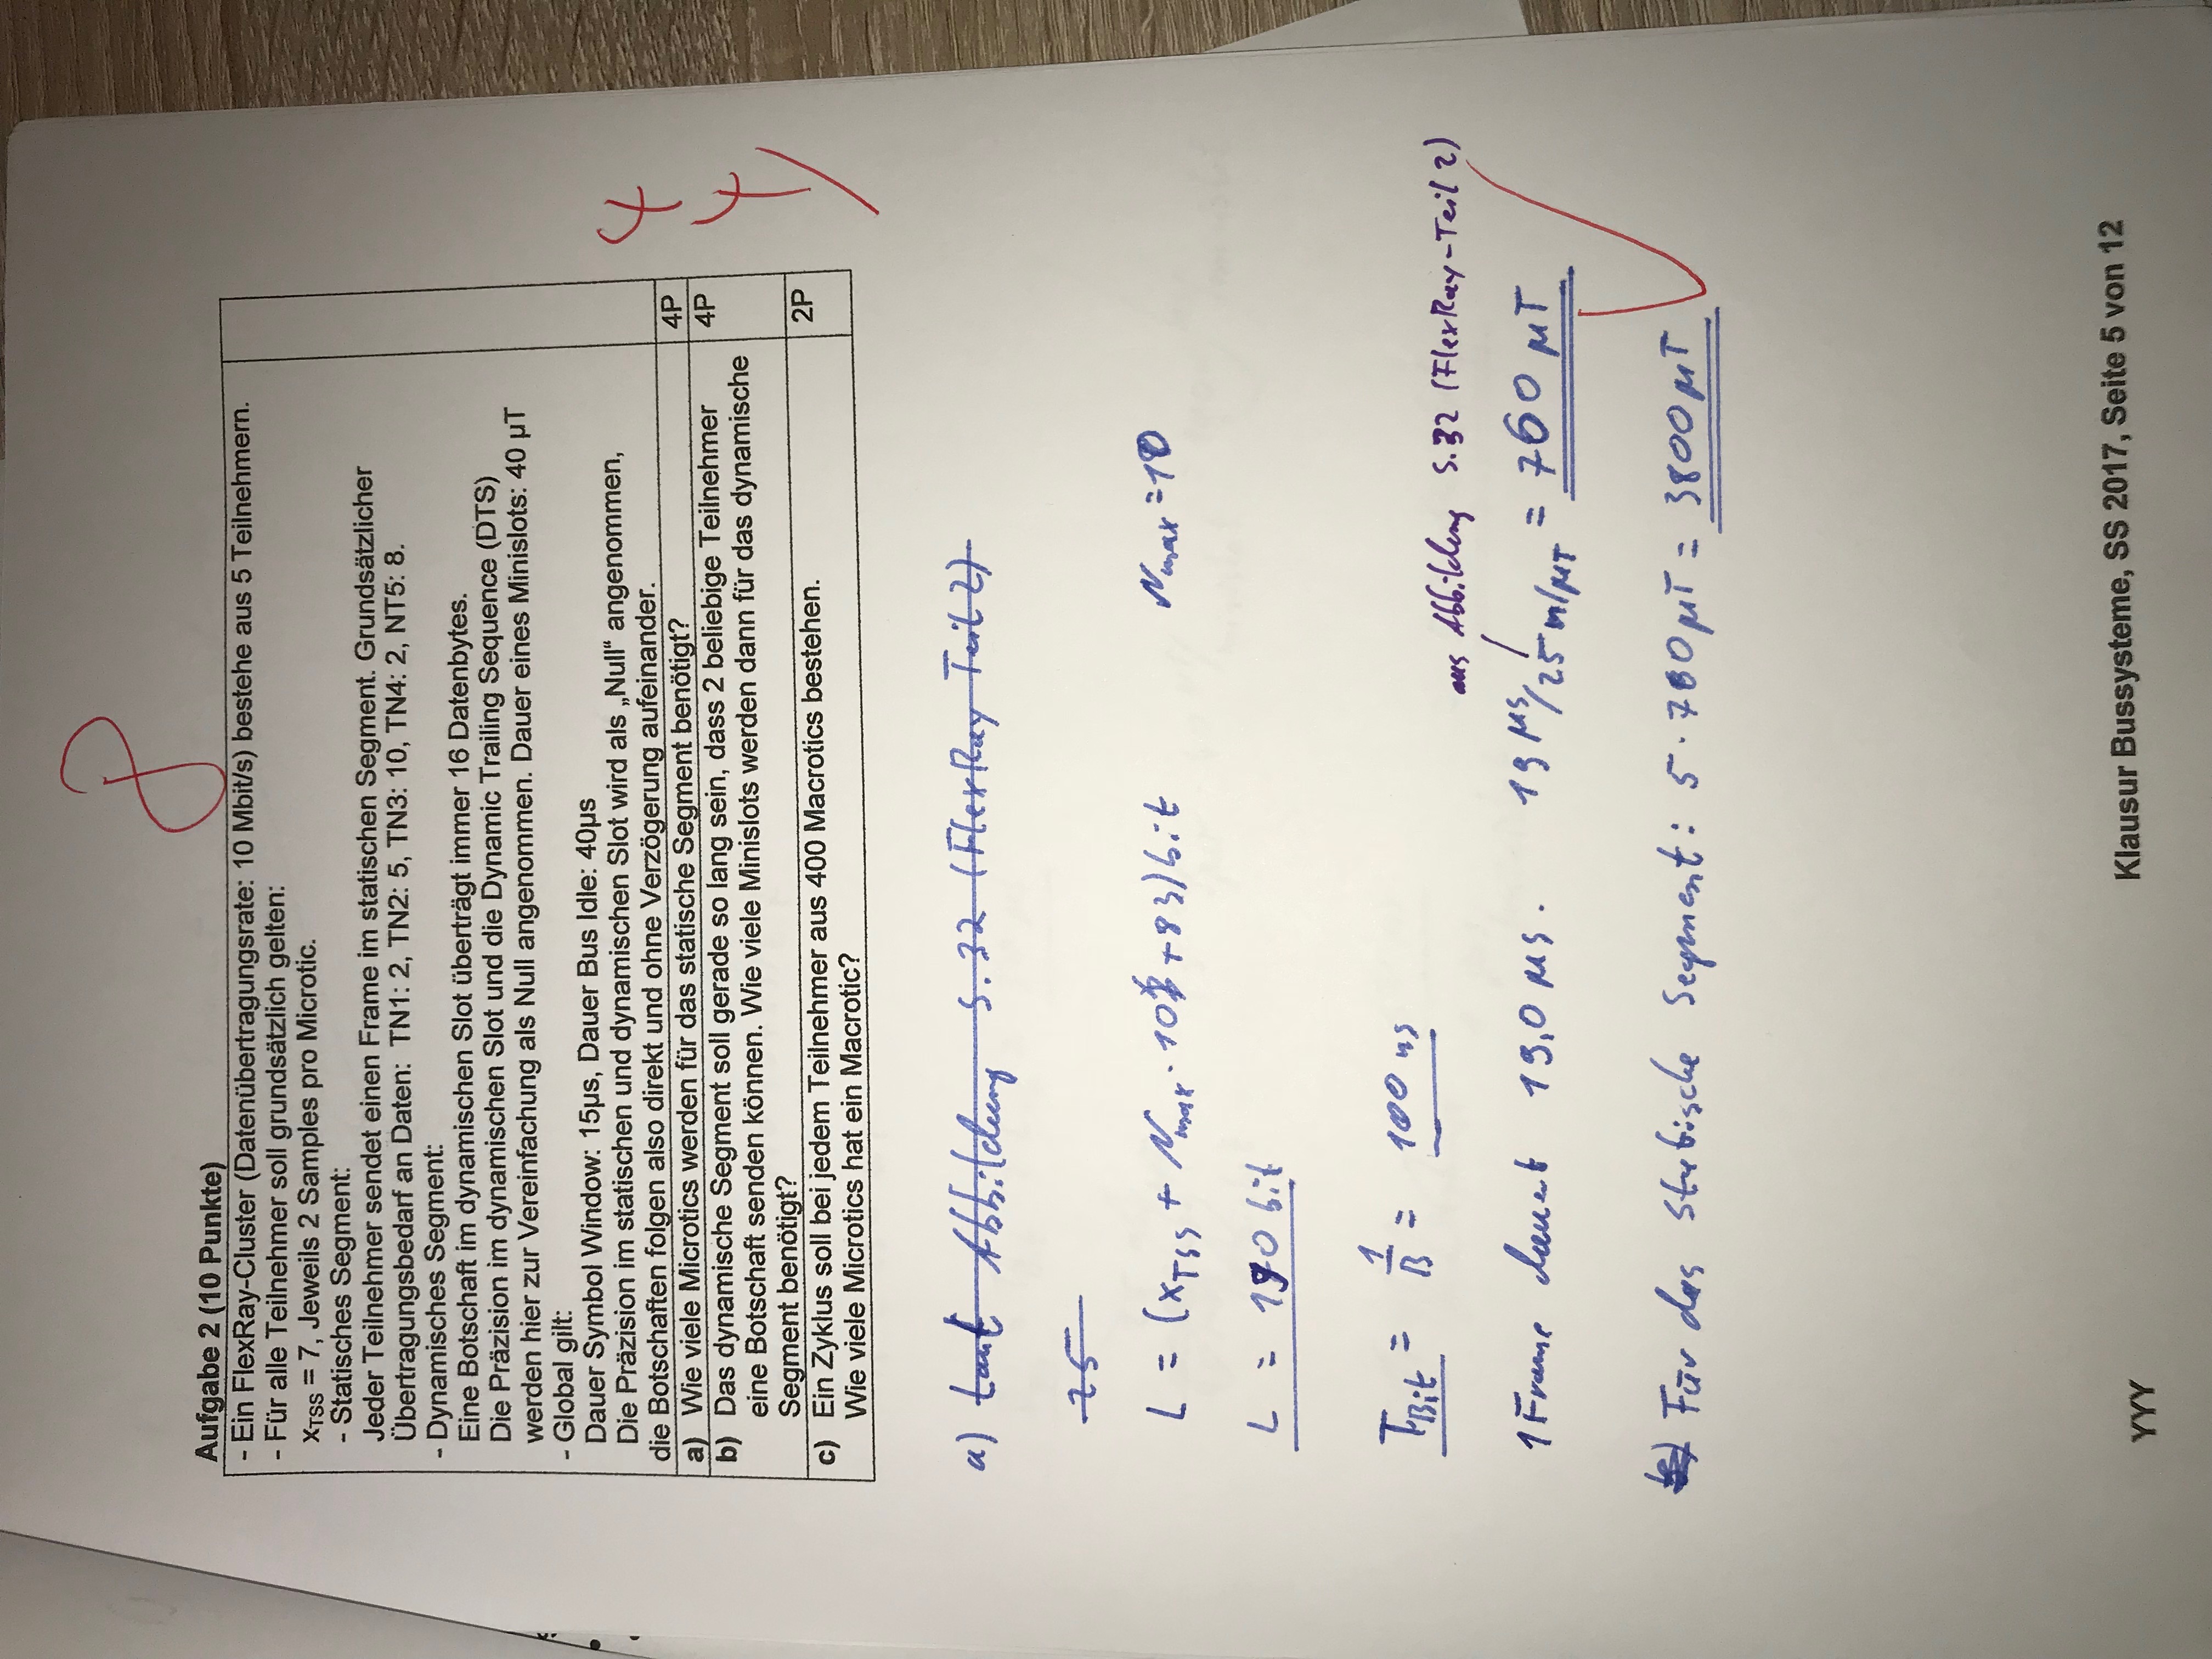 8
Aufgabe 2 (10 Punkte)
- Ein FlexRay-Cluster (Datenübertragungsrate: 10 Mbit/s) bestehe aus 5 Teilnehmern.
- Für alle Teilnehmer soll grundsätzlich gelten:
xTSS = 7, Jeweils 2 Samples pro Microtic.
- Statisches Segment:
Jeder Teilnehmer sendet einen Frame im statischen Segment. Grundsätzlicher
Übertragungsbedarf an Daten: TN1: 2, TN2: 5, TN3: 10, TN4: 2, NT5: 8.
- Dynamisches Segment:
Eine Botschaft im dynamischen Slot überträgt immer 16 Datenbytes.
Die Präzision im dynamischen Slot und die Dynamic Trailing Sequence (DTS)
werden hier zur Vereinfachung als Null angenommen. Dauer eines Minislots: 40 µT
- Global gilt:
Dauer Symbol Window: 15µs, Dauer Bus Idle: 40µs
Die Präzision im statischen und dynamischen Slot wird als „Null“ angenommen,
die Botschaften folgen also direkt und ohne Verzögerung aufeinander.
4
a) Wie viele Microtics werden für das statische Segment benötigt? 4P
b) Das dynamische Segment soll gerade so lang sein, dass 2 beliebige Teilnehmer 4P
4
eine Botschaft senden können. Wie viele Minislots werden dann für das dynamische
Segment benötigt?
c) Ein Zyklus soll bei jedem Teilnehmer aus 400 Macrotics bestehen. 2P
/
Wie viele Microtics hat ein Macrotic?
a) laut Abbildung S. 32 (FlexRay Teil 2)
25
L = (xTSS + Nmax · 10 + 83) bit Nmax = 10
L = 190 bit
TBit = 1/B = 100 ns
aus Abbildung S. 32 (FlexRay-Teil 2)
1 Frame dauert 19,0 µs. 19 µs/25 n/µT = 760 µT
Für das statische Segment: 5 · 760 µT = 3800 µT
YYY
Klausur Bussysteme, SS 2017, Seite 5 von 12